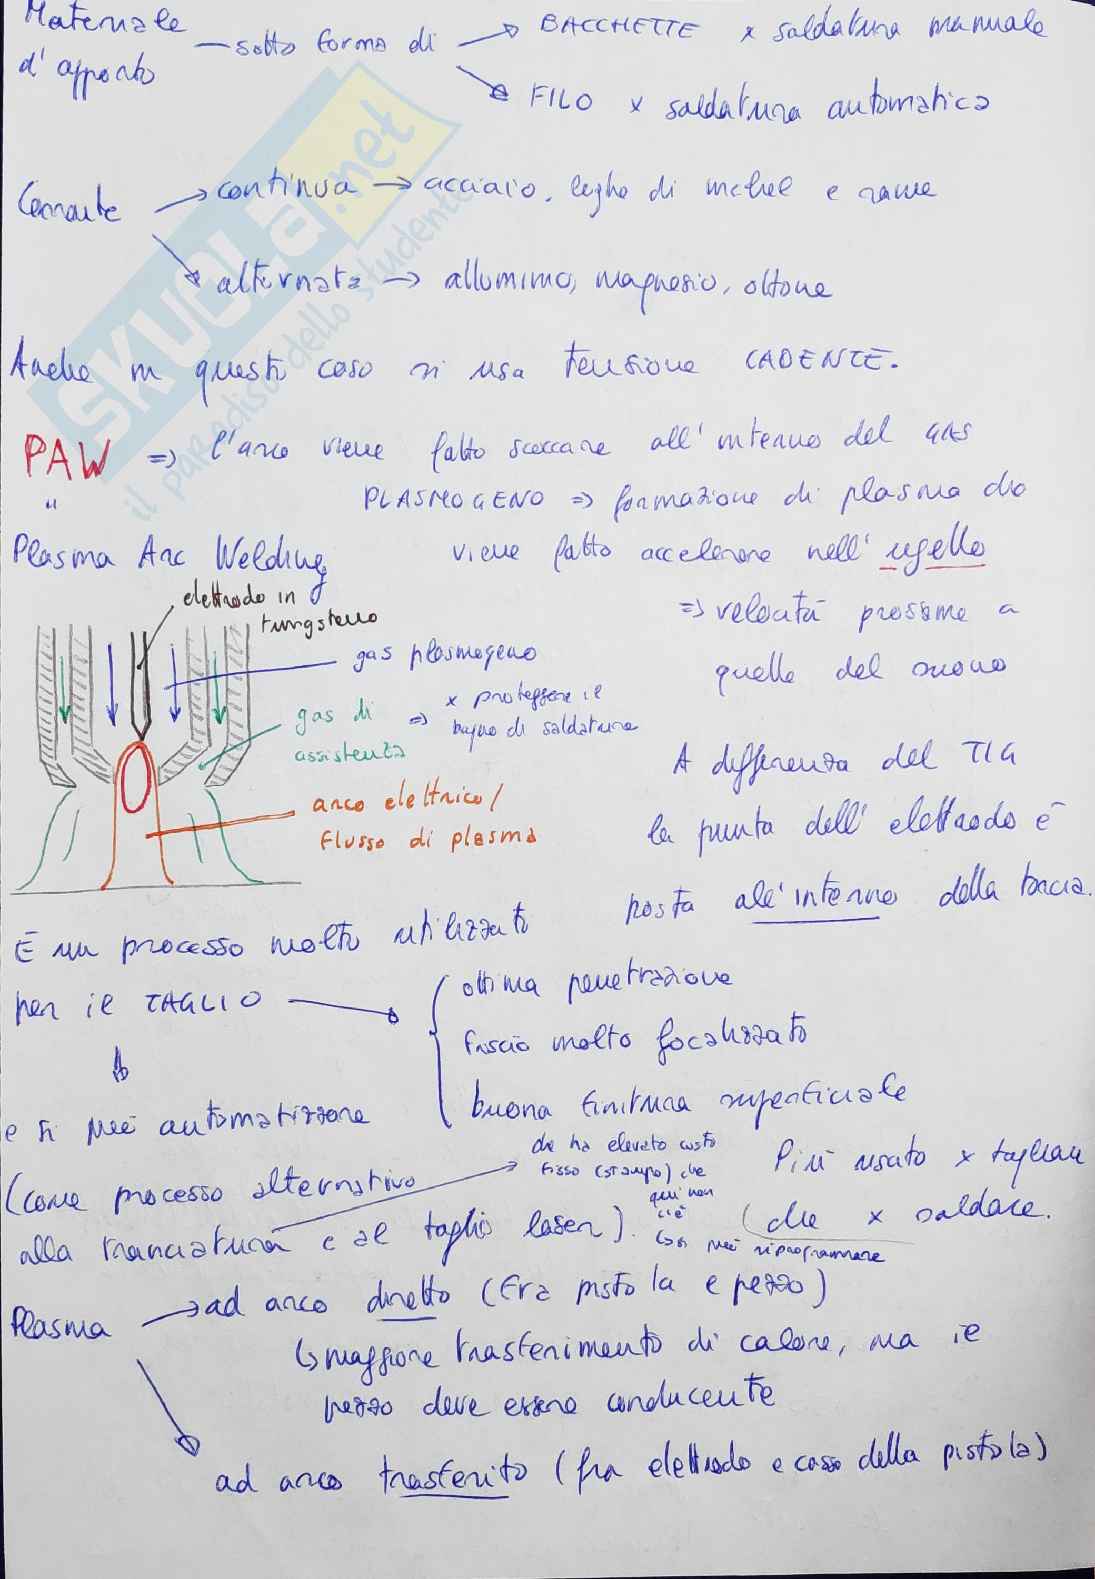 Materiale
d'apporto
— sotto forma di → BACCHETTE x saldatura manuale
→ FILO x saldatura automatica
Corrente → continua → acciaio, leghe di nichel e rame
→ alternata → alluminio, magnesio, ottone
Anche in questo caso si usa tensione CADENTE.
PAW => l'arco viene fatto scoccare all'interno del GAS
PLASMOGENO => formazione di plasma che
"
Plasma Arc Welding
viene fatto accelerare nell'ugello
=> velocità prossime a
quelle del suono
elettrodo in
tungsteno
gas plasmogeno
gas di
assistenza
=> x proteggere il
bagno di saldatura
arco elettrico/
flusso di plasma
A differenza del TIG
la punta dell'elettrodo è
posta all'interno della torcia.
È un processo molto utilizzato
per il TAGLIO →
ottima penetrazione
fascio molto focalizzato
buona finitura superficiale
e si può automatizzare
(come processo alternativo
alla tranciatura e al taglio laser).
che ha elevato costo
fisso (stampo) che
qui non
c'è
↳ si può riprogrammare
Più usato x tagliare
(che x saldare.
Plasma → ad arco diretto (fra pistola e pezzo)
↳ maggiore trasferimento di calore, ma il
pezzo deve essere conducente
ad arco trasferito (fra elettrodo e corpo della pistola)
SKUOLA.net
il paradiso dello studente